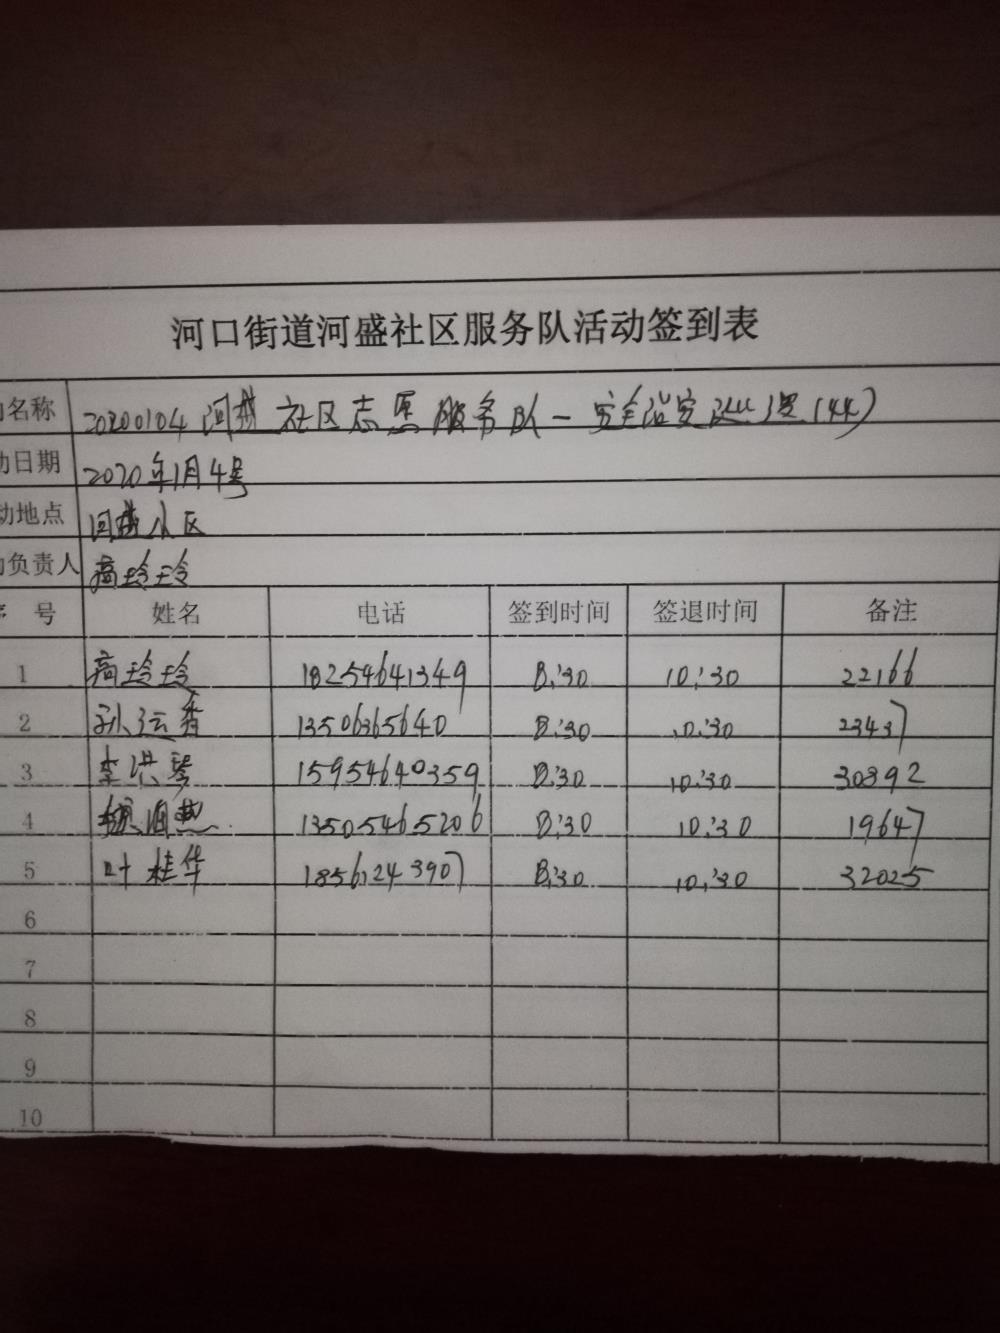 河口街道河盛社区服务队活动签到表
名称 20200104河盛社区志愿服务队一安全治安巡逻(44)
动日期 2020年1月4号
动地点 河盛小区
负责人 高玲玲
序 号 姓名 电话 签到时间 签退时间 备注
1 高玲玲 18254641349 8:30 10:30 22166
2 孙运香 13506365640 8:30 10:30 23437
3 李洪琴 15954640359 8:30 10:30 30392
4 13505465206 8:30 10:30 19647
5 叶桂华 18561243907 8:30 10:30 32025
6
7
8
9
10